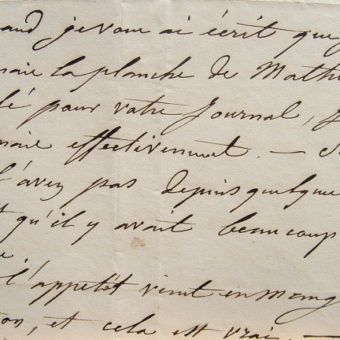 and je vous ai écrit que j
naie la planche de Mathi
lé pour votre Journal, j
naie effectivement. — S
l'avez pas depuis quelque
t qu'il y avait beaucoup
e
l'appétit vient en mang
on, et cela est vrai —